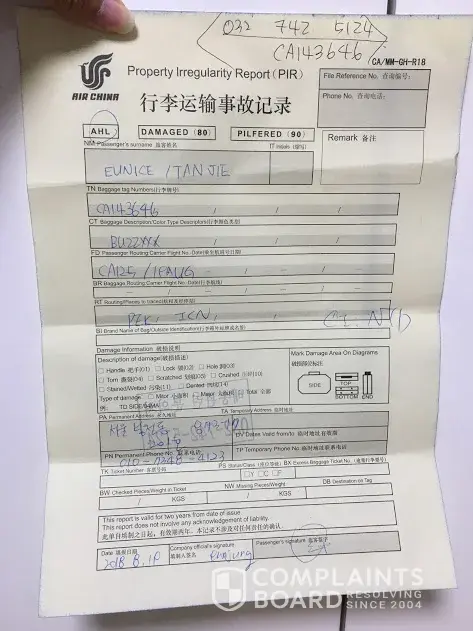 032 742 5124
CA143646
CA/MM-GH-R18
AIR CHINA
Property Irregularity Report (PIR)
行李运输事故记录
File Reference No. 查询编号:
Phone No. 查询电话:
AHL
DAMAGED (80)
PILFERED (90)
Remark 备注
NM Passenger's surname 旅客姓名
IT Initials (缩写)
EUNICE / TAN JIE
TN Baggage tag Numbers(行李牌号)
CA143646
CT Baggage Description/Color Type Descriptors(行李颜色类型)
BU22XXX
FD Passenger Routing/Carrier Flight No.-Date(乘坐航班号日期)
CA125 / 1FAUG
BR Baggage Routing/Carrier Flight No.-Date(行李航线)
RT Routing/Places to traced
PEK, ICN,
BI Brand Name of Bag/Outside Identification(行李箱外观牌或名签)
Damage Information 破损说明
Description of damage(破损描述)
Handle 把手(01) Lock 锁(02) Hole 洞(03)
Torn 撕裂(04) Scratched 划痕(05) Crushed
Stained/Wetted 污染(11) Dented 凹陷(14)
Type of damage: Minor 小面积 Major 大面积 Total 全部
例: TD SIDE/5/MA
Mark Damage Area On Diagrams
破损部位标注
SIDE
TOP
BOTTOM
END
PA Permanent Address 永久地址
TA Temporary Address 临时地址
DV Dates Valid from/to 临时地址有效期
PN Permanent Phone No. 联系电话
TP Temporary Phone No. 临时地址联系电话
TK Ticket Number 客票号码
PS Status/Class
BX Excess Baggage Ticket No.
Y C F
BW Checked Pieces/Weight in Ticket
NW Missing Pieces/Weight
DB Destination on Tag
/ KGS
/ KGS
This report is valid for two years from date of issue.
This report does not involve any acknowledgement of liability.
此单自填制之日起,有效期两年。本记录不涉及对任何责任的确认。
Date 填报日期
2018 8. 18
Company official's signature
填制人签名
Passenger's signature 旅客签字
COMPLAINTS
BOARD
RESOLVING
SINCE 2004